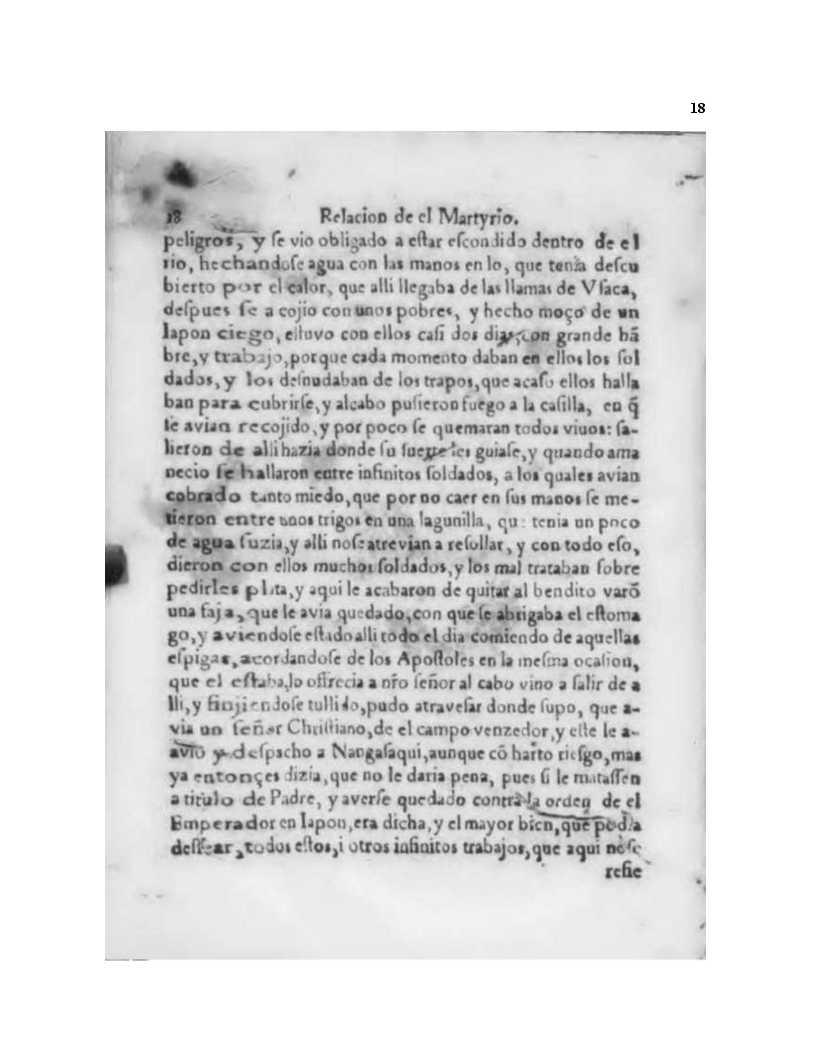 18
18 Relacion de el Martyrio.
peligros, y ſe vio obligado a eſtar eſcondido dentro de el
rio, hechandoſe agua con las manos en lo, que tenia deſcu
bierto por el calor, que alli llegaba de las llamas de Vſaca,
deſpues ſe a cojio con unos pobres, y hecho moço de un
Iapon ciego, eſtuvo con ellos caſi dos dias, con grande hã
bre, y trabajo, porque cada momento daban en ellos los ſol
dados, y los deſnudaban de los trapos, que acaſo ellos halla
ban para cubrirſe, y alcabo puſieron fuego a la caſilla, en q̃
ſe avian recojido, y por poco ſe quemaran todos viuos: ſa-
lieron de alli hazia donde ſu ſuerte les guiaſe, y quando ama
necio ſe hallaron entre infinitos ſoldados, a los quales avian
cobrado tanto miedo, que por no caer en ſus manos ſe me-
tieron entre unos trigos en una lagunilla, que tenia un poco
de agua ſuzia, y alli noſe atrevian a reſollar, y con todo eſo,
dieron con ellos muchos ſoldados, y los mal trataban ſobre
pedirles plata, y aqui le acabaron de quitar al bendito varõ
una faja, que le avia quedado, con que ſe abrigaba el eſtoma
go, y aviendoſe eſtado alli todo el dia comiendo de aquellas
eſpigas, acordandoſe de los Apoſtoles en la meſma ocaſion,
que el eſtaba, lo offrecia a nr̃o ſeñor al cabo vino a ſalir de a
lli, y finjiendoſe tullido, pudo atraveſar donde ſupo, que a-
via un ſeñor Chriſtiano, de el campo venzedor, y eſte le a-
avio y deſpacho a Nangaſaqui, aunque cõ harto rieſgo, mas
ya entonçes dizia, que no le daria pena, pues ſi le mataſſen
a titulo de Padre, y averſe quedado contra la orden de el
Emperador en Iapon, era dicha, y el mayor bien, que podia
deſſear, todos eſtos, i otros infinitos trabajos, que aqui no ſe
refie